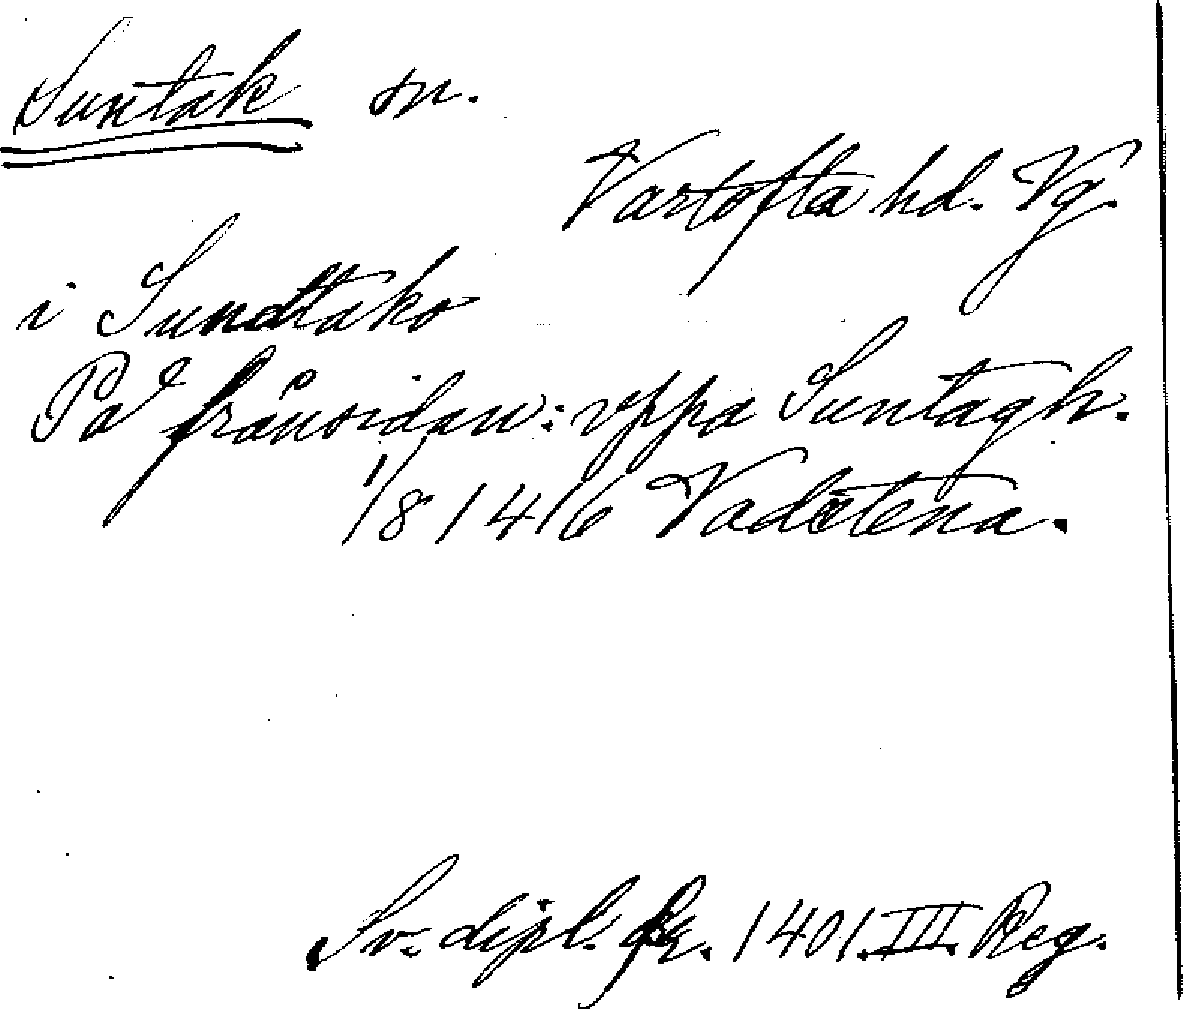 Suntak sn.
Vartofta hd. Vg.
i Sundtako
På frånsidan: vppa Suntagh.
1/8 1416 Vadstena.
Sv. dipl. fr. 1401. III. Reg.